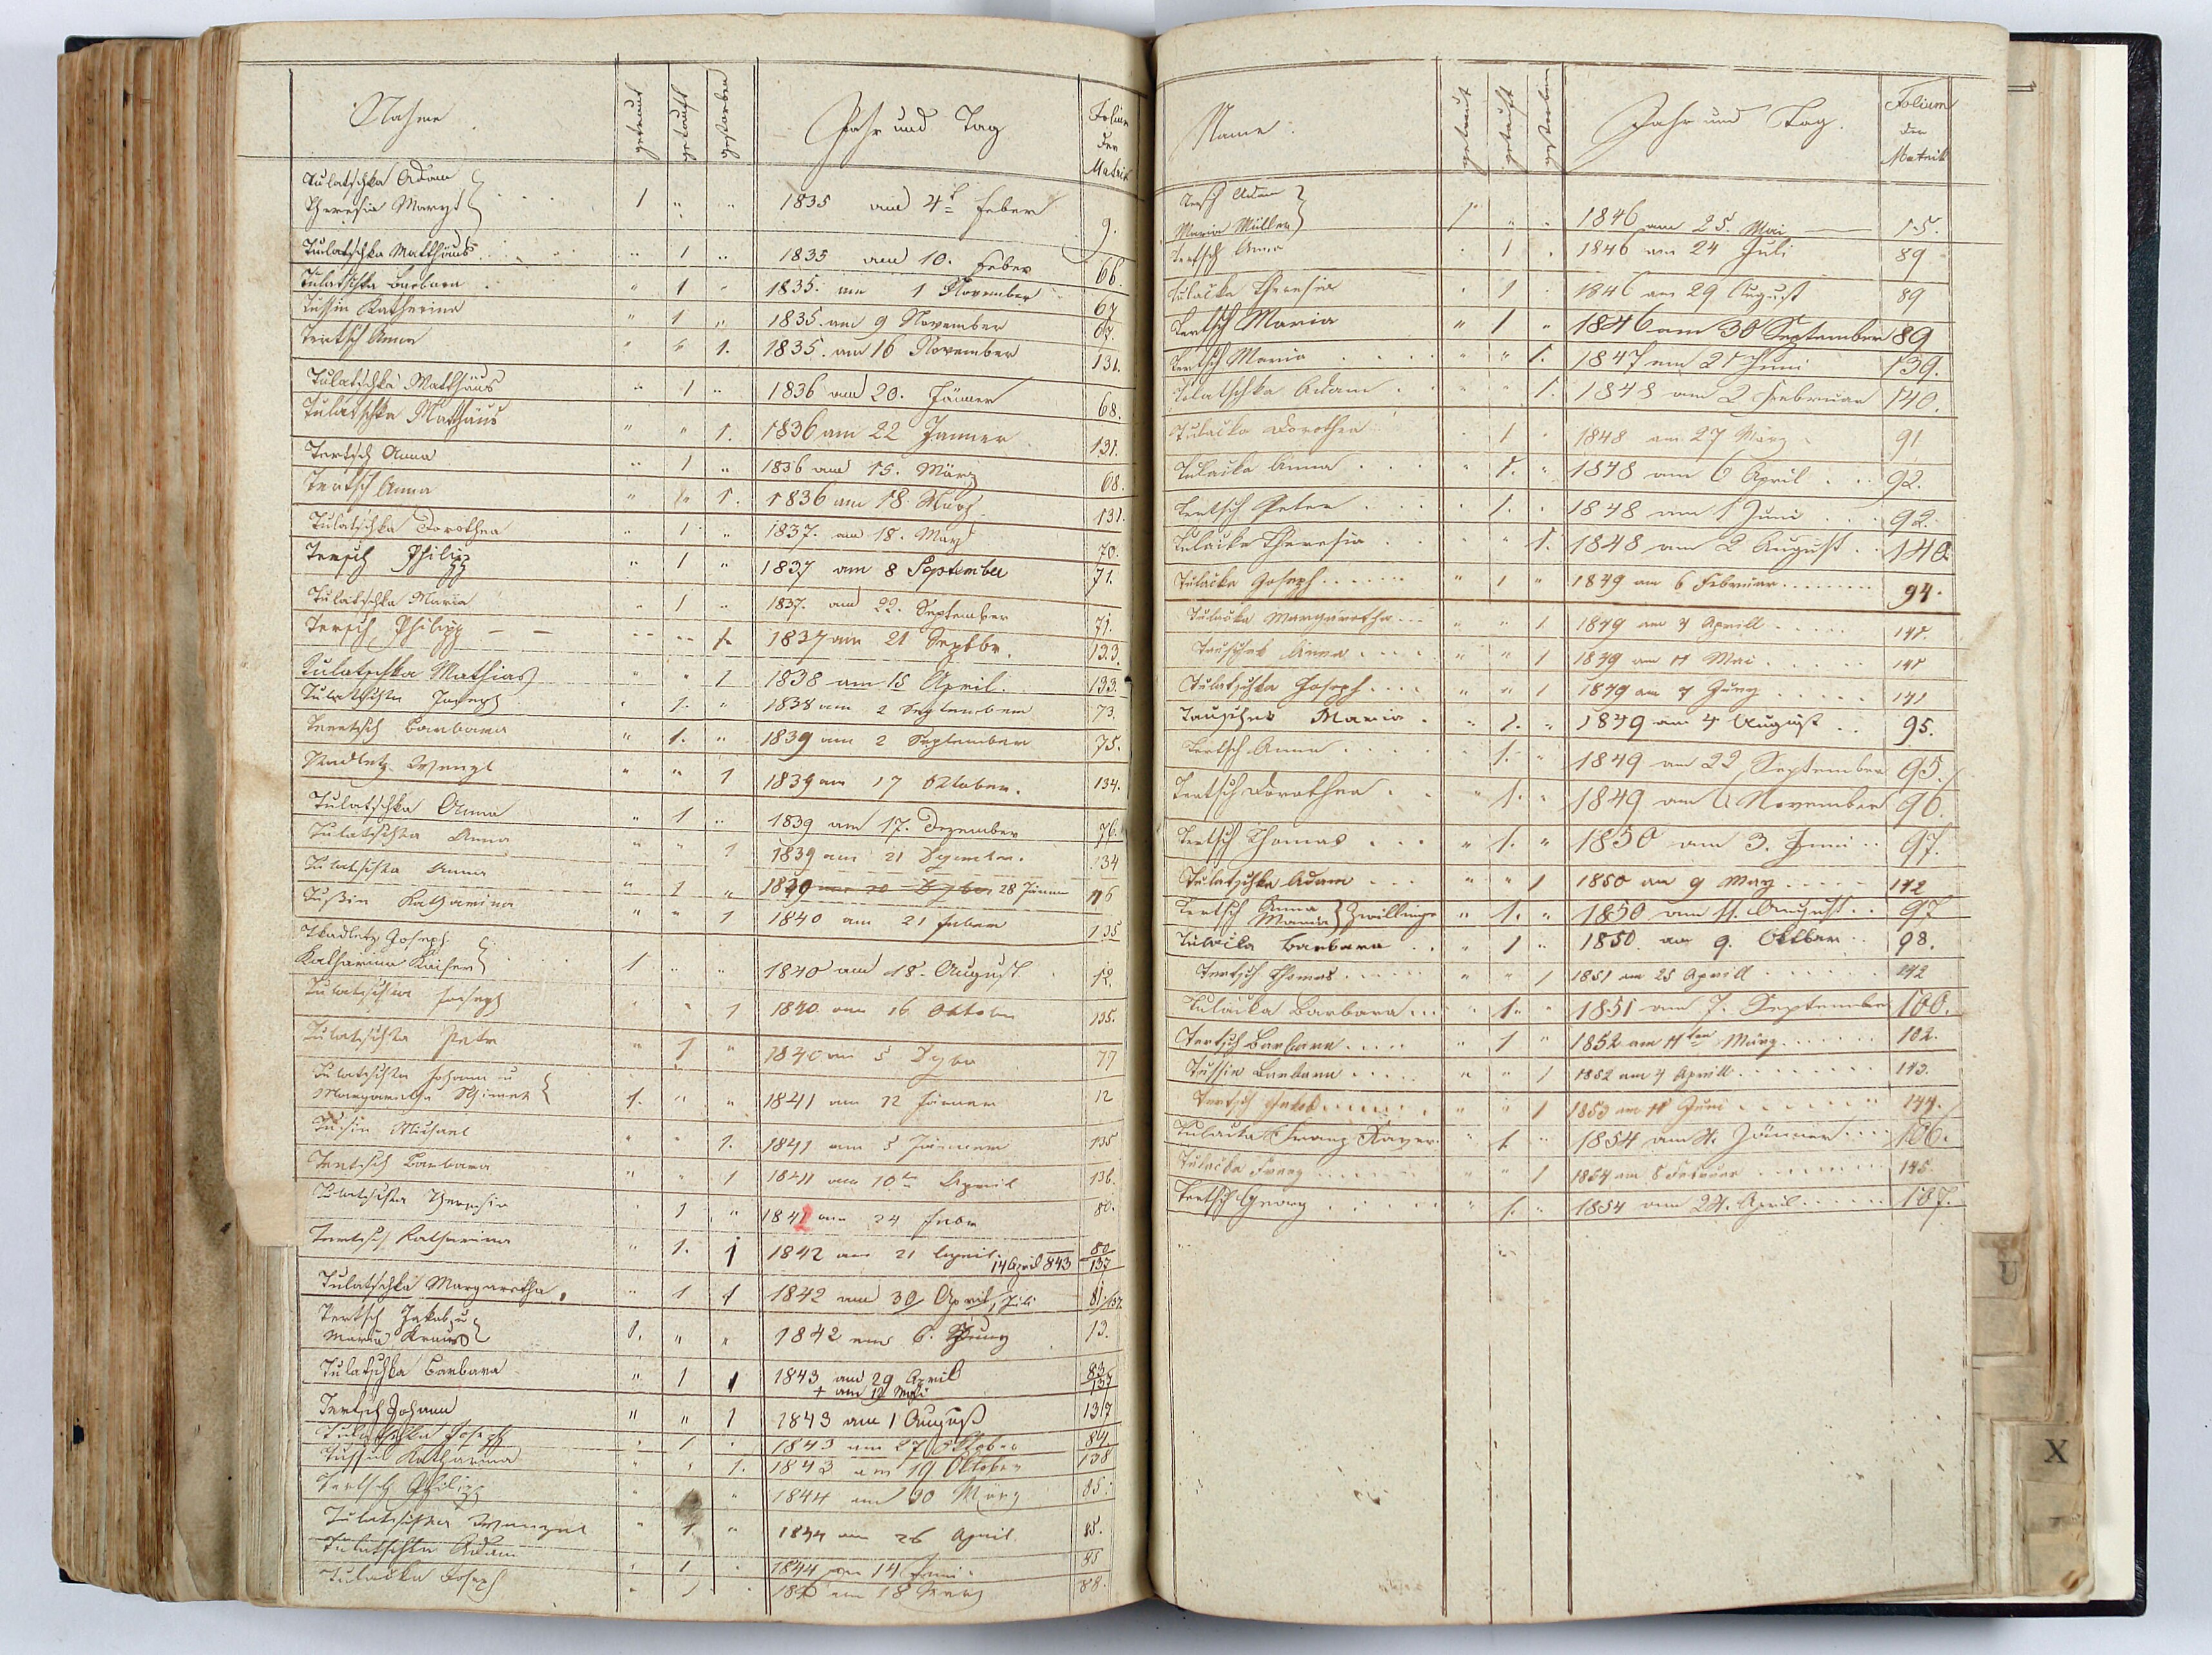 Nahme getraut getauft gestorben Jahr und Tag Folium der Matrik
Tulatschka Adam
Theresia 1 " " 1835 am 4t Feber 9.
Tulatschka Matthäus " 1 " 1835 am 10. Feber 66.
Tulatschka Barbara " 1 " 1835. am 1 November 67
Tussin Katharina " 1 " 1835. am 9 November 67.
Tertsch Anna " " 1. 1835. am 16 November 131.
Tulatschka Matthäus " 1 " 1836 am 20. Jänner 68.
Tulatschka Matthäus " " 1. 1836 am 22 Janner 131.
Tertsch Anna " 1 " 1836 am 15. März 68.
Tertsch Anna " " 1. 1836 am 18. März 131.
Tulatschka Dorothea " 1 " 1837. am 18. May 70.
Tersch Philipp " 1 " 1837 am 8 September 71.
Tulatschka Maria " 1 " 1837. am 22. September 71.
Tersch Philipp " " 1. 1837 am 21 Septbr. 133.
Tulatschka Mathias " " 1 1838 am 15 April. 133.
Tulatschka Joseph " 1. " 1838 am 2 September 73.
Tertsch Barbara " 1. " 1839 am 2 September 75.
Wenzl " " 1 1839 am 17 Oktober. 134.
Tulatschka Anna " 1 " 1839 am 17. Dezember 76.
Tulatschka Anna " " 1 1839 am 21 Dezember. 134
Tulatschka Anna " 1 " 28 Jänner 76
Tußin Katharina " " 1 1840 am 21 Feber 135
Tkadletz Joseph
Katharina Kaiser 1 " " 1840 am 18. August 12.
Tulatschka Joseph " " 1 1840 am 16. Oktober 135.
Tulatschka Peter " 1 " 1840 am 5 Dzbr 77
Tulatschka Johann u
Margaretha 1. " " 1841 am 12 Jänner 12
Tussin Michael " " 1. 1841 am 5 Jänner 135
Tertsch Barbara " " 1 1841 am 10te April 136.
Tulatschka Theresia " 1 " 1842 am 24 Feber 80.
Tertsch Katharina " 1. 1 1842 am 21 April. 14 April 843 80 137
Tulatschka Margaretha " 1 1 1842 am 30 April, Juli 81/137
Tertsch Jakob u
Maria Kraus 1. " " 1842 am 6. 13.
Tulatschka Barbara " 1 1 1843 am 29 April 83
+ am 12 Mai 137
Tertsch Johann " " 1 1843 am 1 August 137
Tulatschka Joseph " 1 " 1843 am 27 Oktober 84
Tussin Katharina " " 1. 1843 am 19 Oktober 138
Tertsch Philipp " " 1844 am März 85.
Tulatschka Wenzel " 1. " 1844 am 26 April 85.
Tulatschka Adam " 1 " 1844 am 14 Juni 85
Tulacka Joseph " 1 " am 18 März 88.
Name getraut getauft gestorben Jahr und Tag. Folium der Matrik
Tersch Adam
Maria Müller 1 " " 1846 am 25. Mai 15.
Tertsch Anna " 1 " 1846 am 24 Juli 89
Tulacka Theresia " 1 " 1846 am 29 August 89
Tertsch Maria " 1 " 1846 am 30 September 89
Tertsch Maria " " 1. 1847 am 21 Juni 139.
Tulatschka Adam " " 1. 1848 am 2 Februar 140.
Tulacka Dorothea " 1 " 1848 am 27 März 91
Tulacka Anna " 1. " 1848 am 6 April 92.
Tertsch Peter " 1. " 1848 am 1 Juni 92.
Tulacka Theresia " " 1. 1848 am 2 August 140.
Tulacka Joseph " 1 " 1849 am 6 Februar 94.
Tulacka Margaretha " " 1 1849 am 4 Aprill 141.
Tauscher Anna " " 1 1849 am 11 Mai 141
Tulatschka Joseph " " 1 1849 am 7 Juny 141
Tauscher Maria " 1. " 1849 am 4 August 95.
Tertsch Anna " 1. " 1849 am 22 September 95.
Tertsch Dorothea " 1. " 1849 am 6 November 96.
Tertsch Thomas " 1. " 1850 am 3. Juni 97.
Tulatschka Adam " " 1 1850 am 9 May 142
Tertsch Anna Maria } Zwillinge " 1. " 1850 am 11. August 97
Tulacka Barbara " 1 " 1850. am 9. Oktber 98.
Tertsch Thomas " " 1 1851 am 25 Aprill 142
Tulacka Barbara " 1. " 1851 am 7. September 100.
Tertsch Barbara " 1 " 1852 am 11ten März 102.
Tussin Barbara " " 1 1852 am 4 Aprill 143.
Tertsch " " 1 1853 am 11 Juni 144.
Tulacka Franz Xaver " 1. " 1854 am 4. Jänner 106.
Tulacka Franz " " 1 1854 am 8 Februar 145.
Tertsch Georg " 1. " 1854 am 24. April 107.
U
X